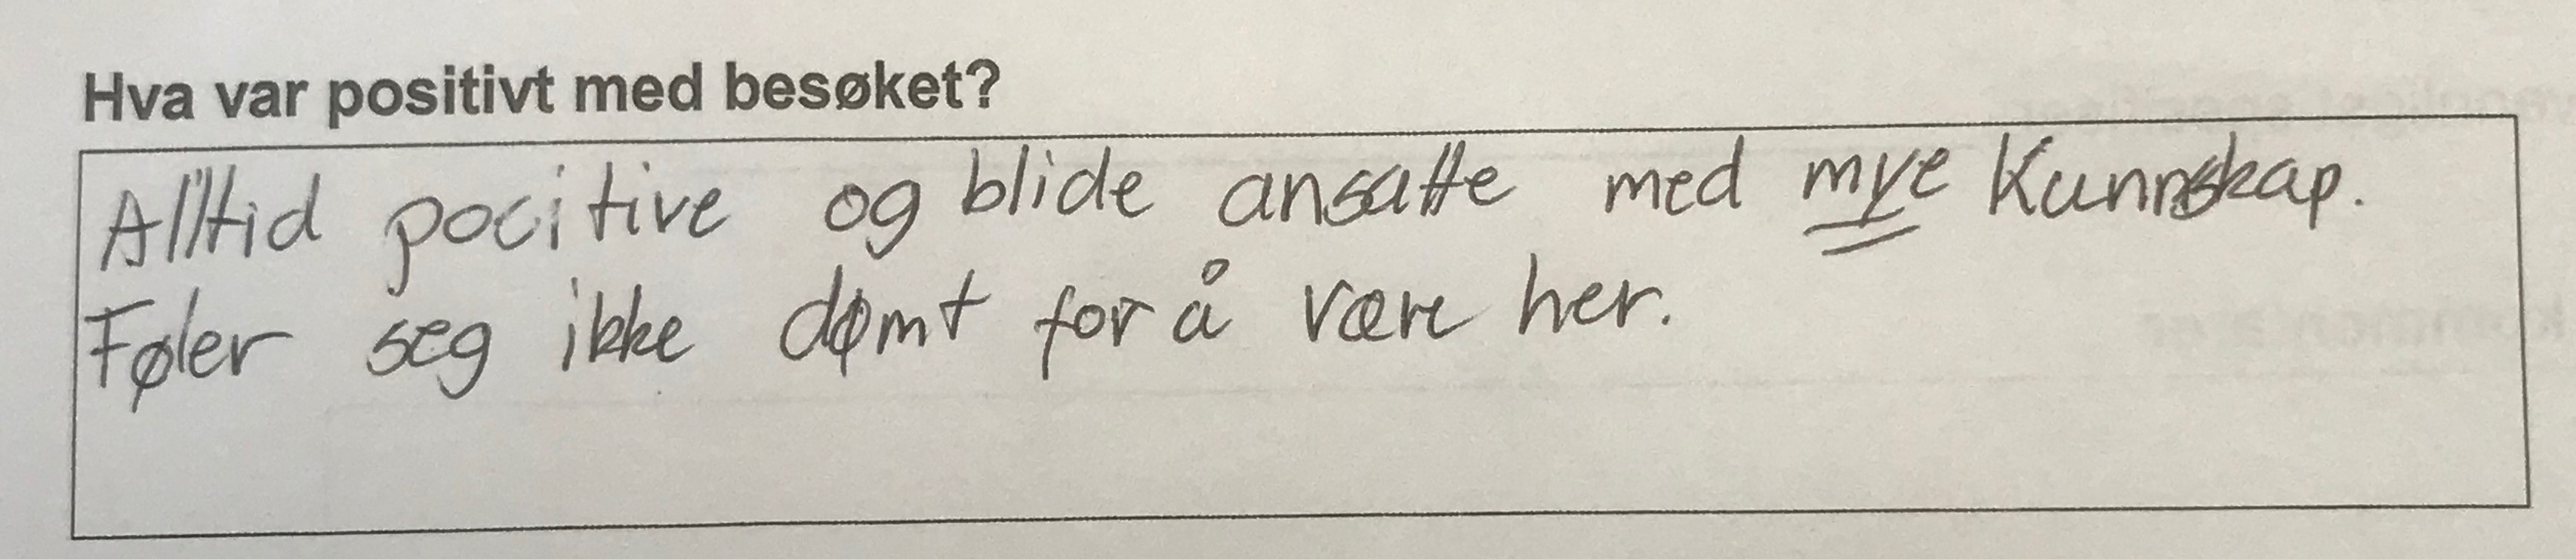 Hva var positivt med besøket?
Alltid pocitive og blide ansatte med mye Kunnskap.
Føler seg ikke dømt for å være her.